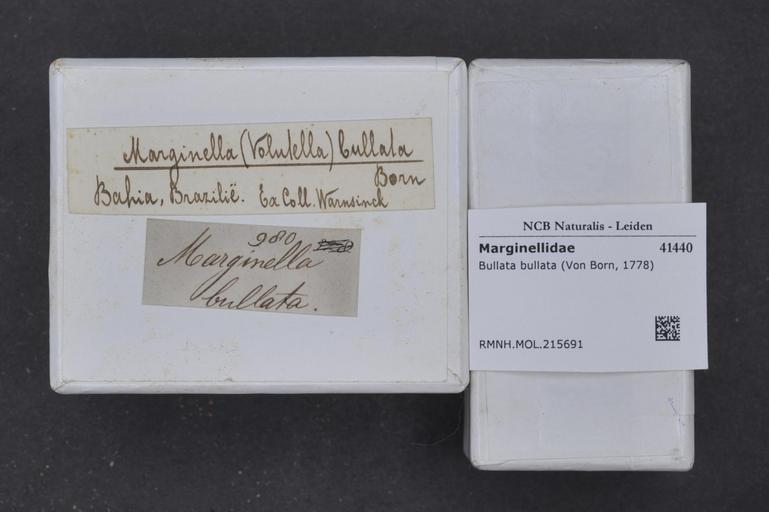 Marginella (Volutella) bullata
Born
Bahia, Brazilië. Ex Coll. Warnsinck
980
Marginella
bullata.
NCB Naturalis - Leiden
Marginellidae 41440
Bullata bullata (Von Born, 1778)
RMNH.MOL.215691